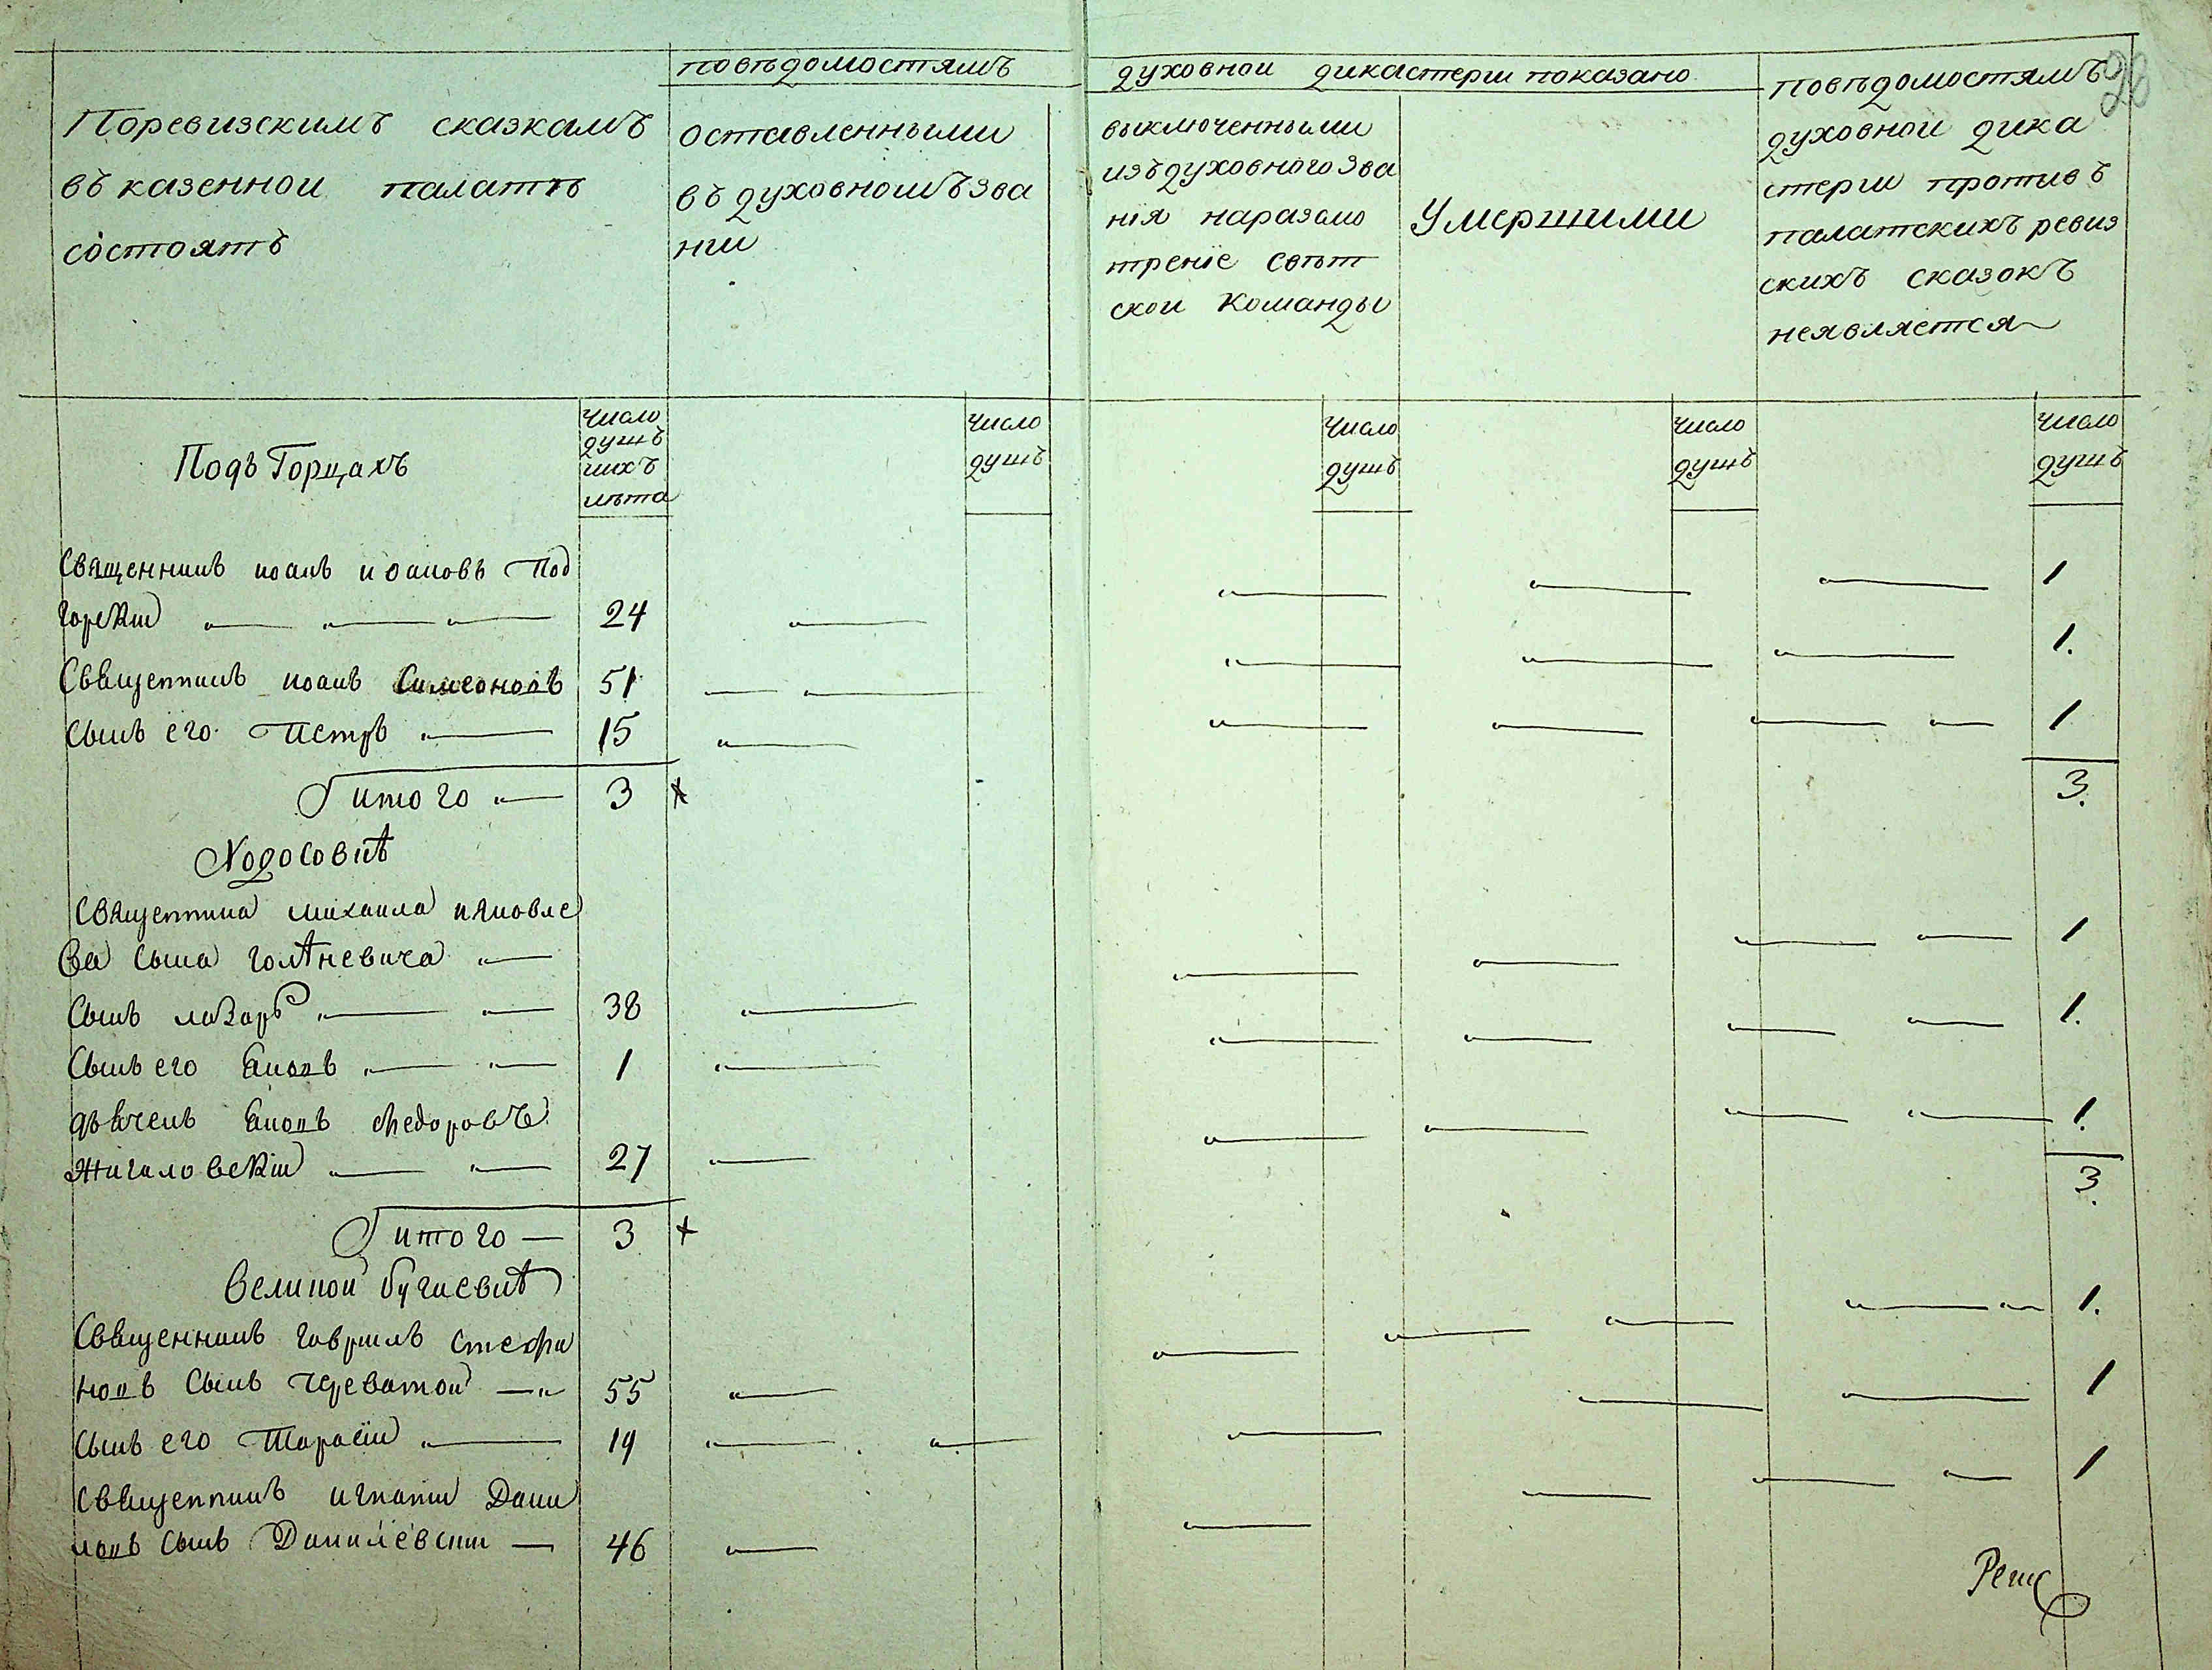 Поревизскимъ сказкамъ
въ казеннои палатѣ
состоятъ
повѣдомостямъ
оставленными
въ духовномъ зва
нии
духовнои дикастерии показано
выключенными
изъ духовного зва
нія наразсмо
тренїе свѣт
скои команды
Умершими
повѣдомостямъ
духовнои дика
стерии противъ
палатскихъ ревиз
скихъ сказокъ
неявляется
28
Число
душъ
ихъ
лѣта
Число
душъ
Число
душъ
Число
душъ
Число
душъ
Подъ Горцахъ
Священникъ иоанъ иоановъ Под
горскии 24 1
Священникъ иоанъ Симеоновъ 51 1.
Сынъ его Петръ 15 1
итого 3 3.
Ходосовкѣ
Священника михаила ияковле
ва сына голѣневича
Сынъ лазарь 38 1
Сынъ его Яковъ 1 1.
дьячекъ Яковъ Федоровъ
Жигаловскии 27 1.
итого 3 3.
Великои бугаевкѣ
Священникъ гаврилъ Стефа
новъ сынъ Череватои 55 1.
Сынъ его Тарасїи 19 1
Священникъ игнатии Дани
ловъ сынъ Данилевскии 46 1